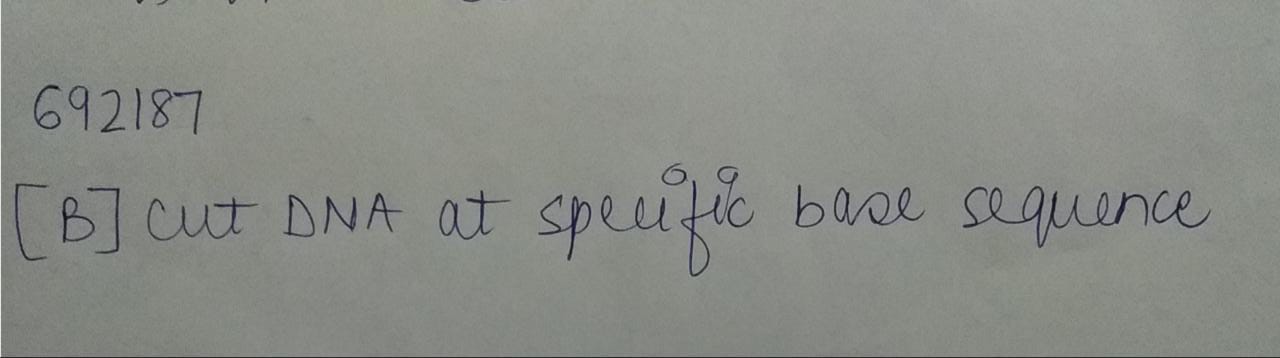 692187
[B] cut DNA at specific base sequence